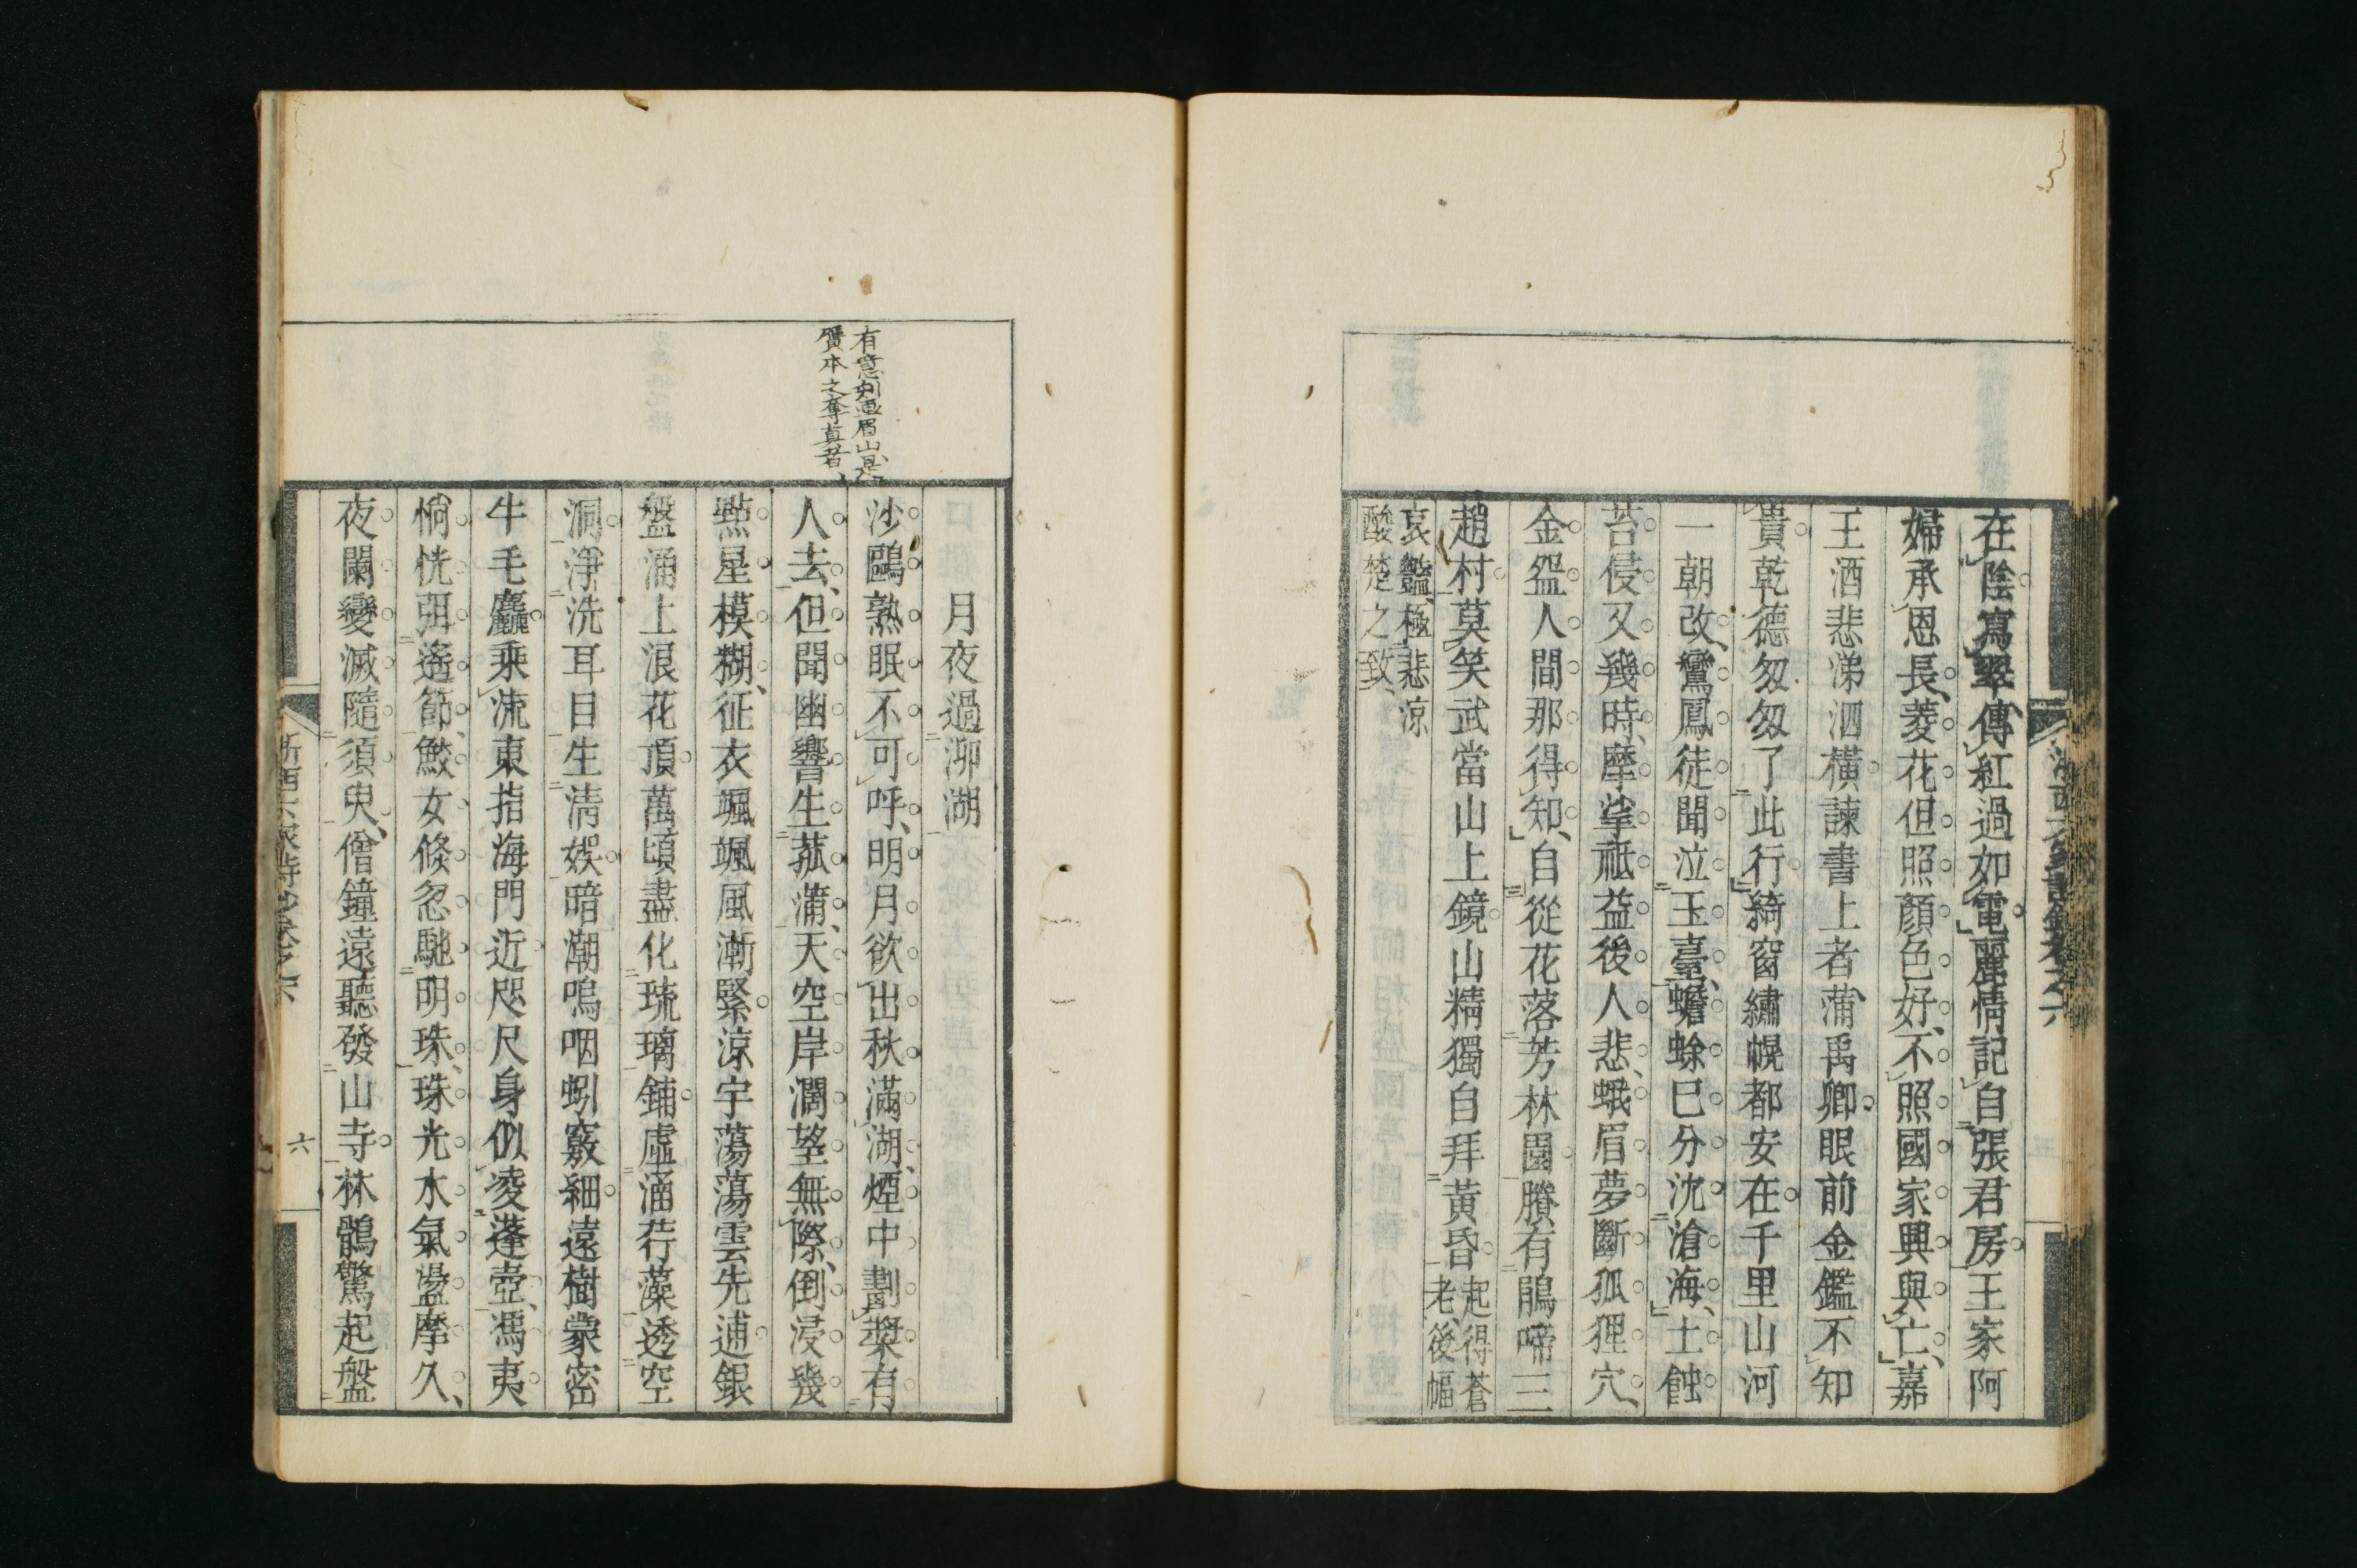 在陰寫翠傳紅過如電麗情記自張君房王家阿
婦承恩長菱花但照顏色好不照國家興與亡嘉
王酒悲涕泗橫諫書上者蒲禹卿眼前金鑑不知
貴乾德匆匆了此行綺窗繡幌都安在千里山河
一朝改鸞鳳徒聞泣玉臺蟾蜍巳分沈滄海土蝕
苔侵又幾時摩挲祗益後人悲蛾眉夢斷狐狸穴
金盌人間那得知自從花落芳林園賸有鵑啼三
趙村莫笑武當山上鏡山精獨自拜黃昏
起得蒼
老後幅
哀豔極悲涼
酸楚之致
月夜過泖湖
沙鷗熟眠不可呼明月欲出秋滿湖煙中劃槳有
人去但聞幽響生菰蒲天空岸濶望無際倒浸幾
點星模糊征衣颯颯風漸緊涼宇蕩蕩雲先逋銀
盤涌上浪花頂萬頃盡化琉璃鋪虛涵荇藻透空
洞淨洗耳目生淸娛暗潮嗚咽蚓竅細遠樹蒙密
牛毛麤乘流東指海門近咫尺身似凌蓬壺馮夷
惝恍弭遙節鮫女倏忽馳明珠珠光水氣盪摩久
夜闌變滅隨須臾僧鐘遠聽發山寺林鶻驚起盤
有意刻畫眉山是
贋本之奪眞者
浙西六家詩鈔卷之六
六